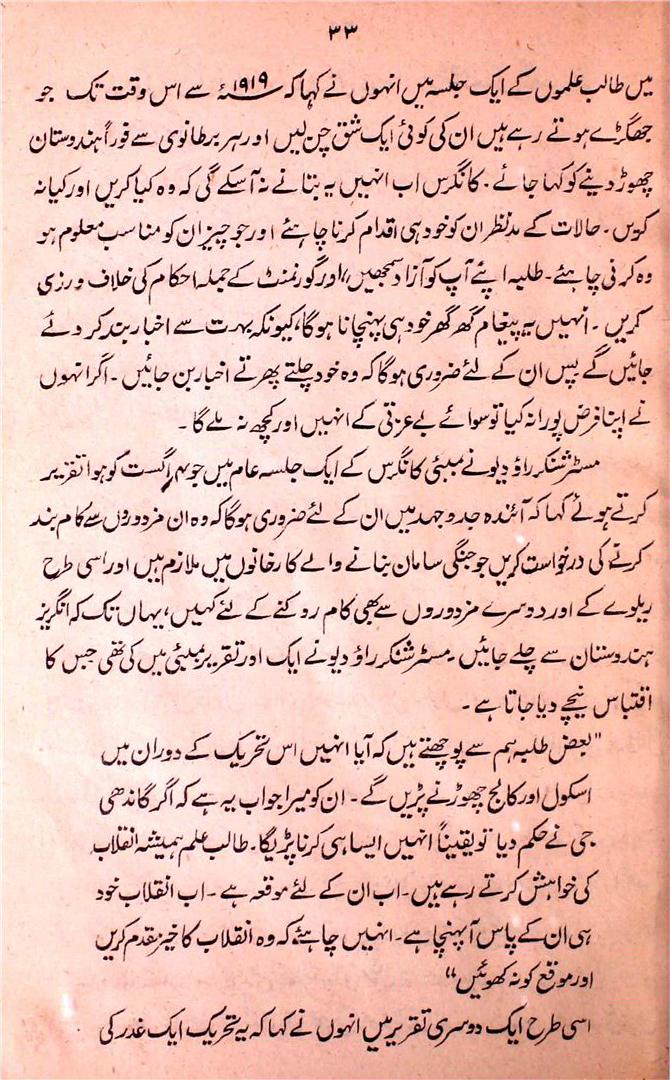 ۳۳
میں طالب علموں کے ایک جلسہ میں انہوں نے کہا کہ ۱۹۱۹ء سے اس وقت تک جو
جھگڑے ہوتے رہے ہیں ان کی کوئی ایک شق چن لیں اور ہر برطانوی سے فوراً ہندوستان
چھوڑ دینے کو کہا جائے۔ کانگرس اب انہیں یہ بتانے نہ آسکے گی کہ وہ کیا کریں اور کیا نہ
کریں۔ حالات کے مدنظر ان کو خود ہی اقدام کرنا چاہئے اور جو چیز ان کو مناسب معلوم ہو
وہ کرنی چاہئے۔ طلبہ اپنے آپ کو آزاد سمجھیں، اور گورنمنٹ کے جملہ احکام کی خلاف ورزی
کریں۔ انہیں یہ پیغام گھر گھر خود ہی پہنچانا ہوگا، کیونکہ بہت سے اخبار بند کر دئے
جائیں گے پس ان کے لئے ضروری ہوگا کہ وہ خود چلتے پھرتے اخبار بن جائیں۔ اگر انہوں
نے اپنا فرض پورا نہ کیا تو سوائے بے عزتی کے انہیں اور کچھ نہ ملے گا۔
مسٹر شنکر راؤ دیو نے بمبئی کانگرس کے ایک جلسہ عام میں جو ۴ اگست کو ہوا تقریر
کرتے ہوئے کہا کہ آئندہ جدوجہد میں ان کے لئے ضروری ہوگا کہ وہ ان مزدوروں سے کام بند
کرنے کی درخواست کریں جو جنگی سامان بنانے والے کارخانوں میں ملازم ہیں اور اسی طرح
ریلوے کے اور دوسرے مزدوروں سے بھی کام روکنے کے لئے کہیں، یہاں تک کہ انگریز
ہندوستان سے چلے جائیں۔ مسٹر شنکر راؤ دیو نے ایک اور تقریر بمبئی میں کی تھی جس کا
اقتباس نیچے دیا جاتا ہے۔
"بعض طلبہ ہم سے پوچھتے ہیں کہ آیا انہیں اس تحریک کے دوران میں
اسکول اور کالج چھوڑنے پڑیں گے۔ ان کو میرا جواب یہ ہے کہ اگر گاندھی
جی نے حکم دیا تو یقیناً انہیں ایسا ہی کرنا پڑیگا۔ طالب علم ہمیشہ انقلاب
کی خواہش کرتے رہے ہیں۔ اب ان کے لئے موقعہ ہے۔ اب انقلاب خود
ہی ان کے پاس آ پہنچا ہے۔ انہیں چاہئے کہ وہ انقلاب کا خیرمقدم کریں
اور موقع کو نہ کھوئیں"
اسی طرح ایک دوسری تقریر میں انہوں نے کہا کہ یہ تحریک ایک غدر کی